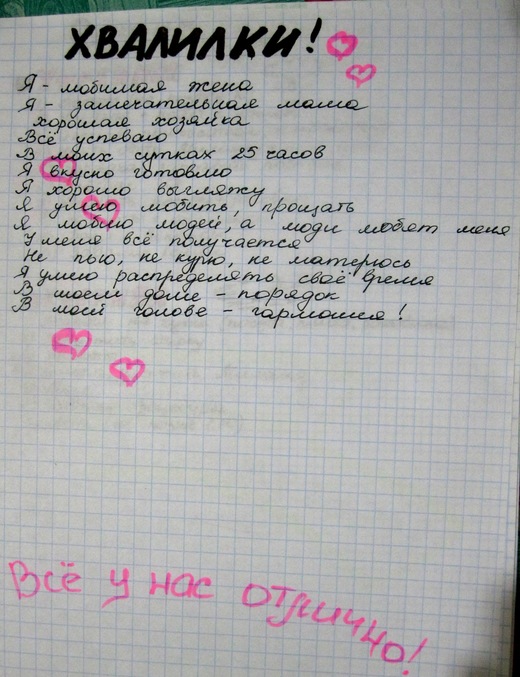 ХВАЛИЛКИ!
Я - любимая жена
Я - замечательная мама
хорошая хозяйка
Всё успеваю
В моих сутках 25 часов
Я вкусно готовлю
Я хорошо выгляжу
Я умею любить, прощать
Я люблю людей, а люди любят меня
У меня всё получается
Не пью, не курю, не матерюсь
Я умею распределять своё время
В моём доме - порядок
В моей голове - гармония!
Всё у нас отлично!